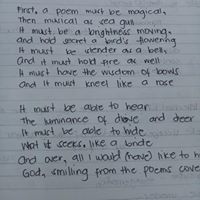 First, a poem must be magical,
Then musical as sea gull
It must be a brightness moving,
and hold secret a bird's flowering
It must be slender as a bell,
And it must hold fire as well
It must have the wisdom of bows
and it must kneel like a rose
It must be able to hear
The luminance of dove and deer
It must be able to hide
What it seeks, like a bride
And over, all I would (have) like to h
God, smiling from the poems cove